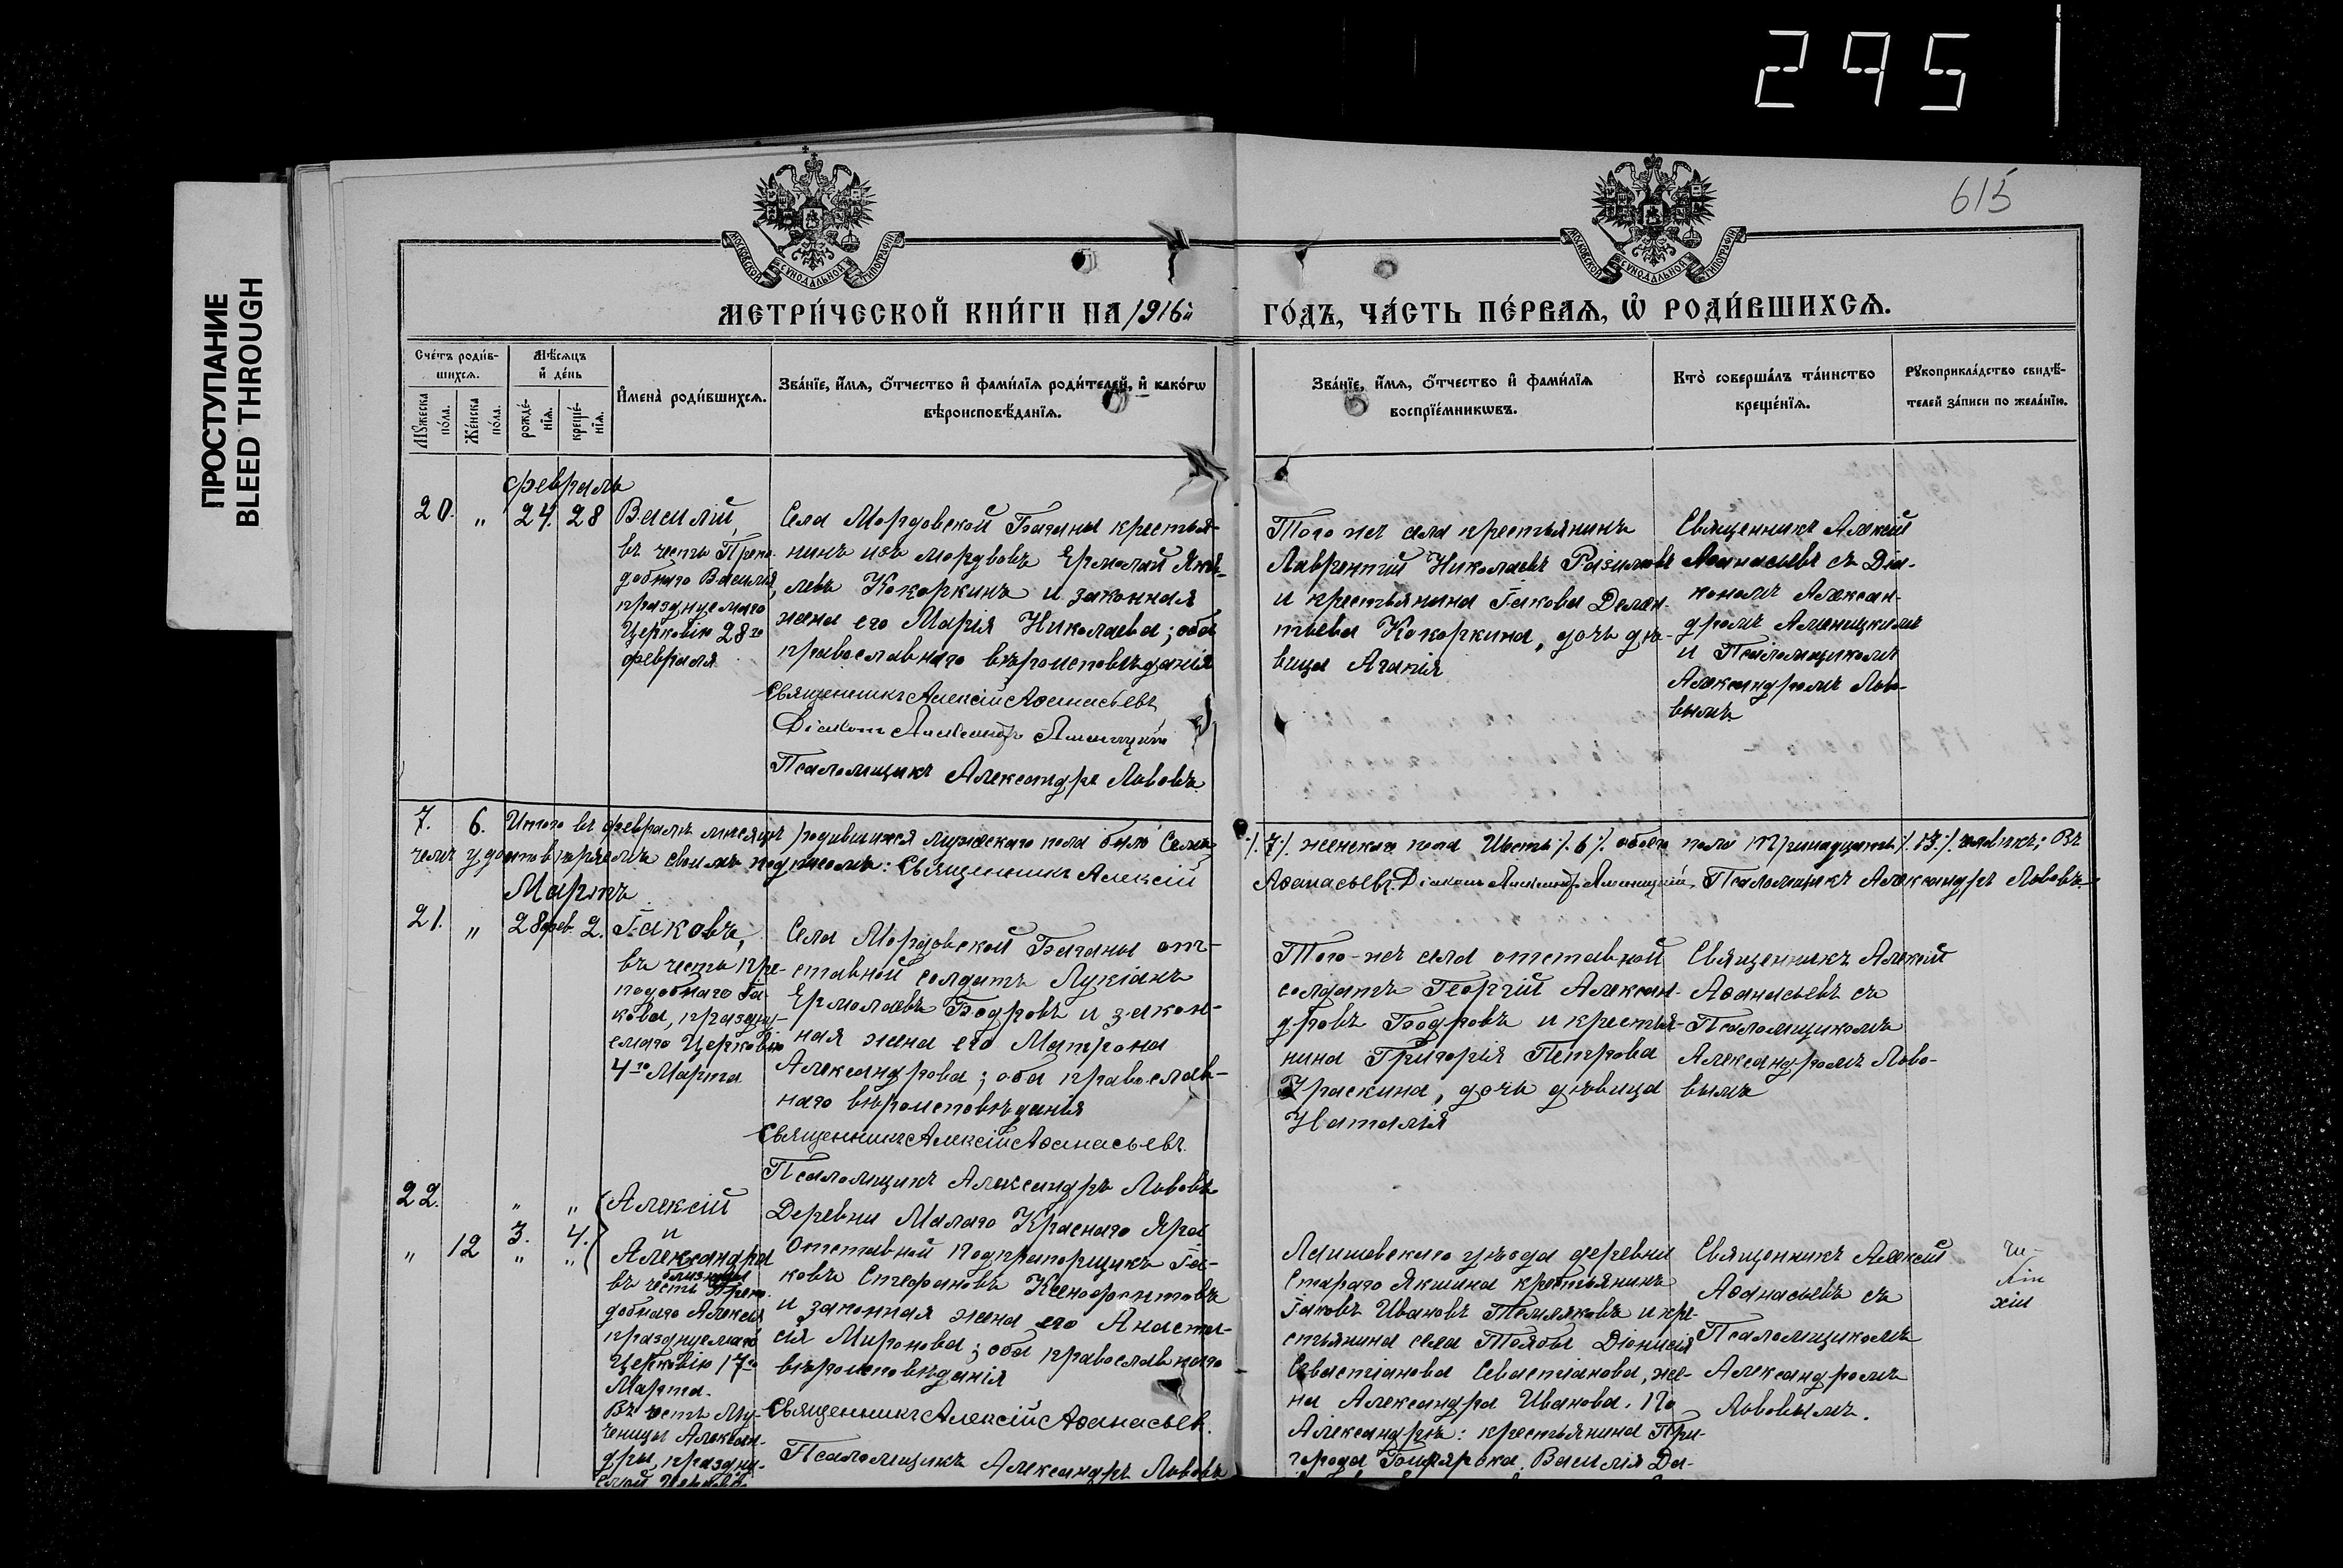 295
ПРОСТУПАНИЕ
BLEED THROUGH
615
МОСКОВСКОЙ СѴНОДАЛЬНОЙ ТИПОГРАФІИ
МОСКОВСКОЙ СѴНОДАЛЬНОЙ ТИПОГРАФІИ
МЕТРИ́ЧЕСКОЙ КНИ́ГИ НА 1916й ГО́ДЪ, ЧА́СТЬ ПЕ́РВАѦ, Ѡ҆ РОДИ́ВШИХСѦ.
Сче́тъ роди́в-
шихсѧ.
Мꙋжеска по́ла.
Же́нска по́ла.
Мѣ́сѧцъ
и҆ де́нь
рожде́-
нїѧ.
креще́-
нїѧ.
И҆мена̀ роди́вшихсѧ.
Зва́нїе, и҆́мѧ, ѻ҆́тчество и҆ фами́лїѧ роди́телей, и҆ како́гѡ
вѣроисповѣ́данїѧ.
Зва́нїе, и҆́мѧ, ѻ҆́тчество и҆ фами́лїѧ
воспрїе́мникѡвъ.
Кто̀ соверша́лъ та́инство
креще́нїѧ.
Рꙋкоприкла́дство свидѣ́-
телей за́писи по жела́нїю.
Февраль
20. " 24. 28
Василій,
въ честь Препо-
добнаго Василія,
празднуемаго
Церковію 28го
февраля
Села Мордовской Баганы крестья-
нинъ изъ мордвовъ Ермолай Яков-
левъ Кокоркинъ и законная
жена его Марія Николаева; оба
православнаго вѣроисповѣданія
Священникъ Алексій Аѳанасьевъ
Діаконъ Александръ
Псаломщикъ Александръ Львовъ
Того же села крестьянинъ
Лаврентій Николаевъ
и крестьянина Іакова Демен-
тьева Кокоркина, дочь дѣ-
вица Агапія
Священникъ Алексій
Аѳанасьевъ съ Діа-
кономъ Алексан-
дромъ
и Псаломщикомъ
Александромъ Льво-
вымъ
7. 6. Итого въ Февралѣ мѣсяцѣ родившихся мужескаго пола было Семь /.7./. женскаго пола Шесть /.6./. обоего пола Тринадцать /.13./. человѣкъ; Въ
чемъ удостовѣряемъ своимъ подписомъ: Священникъ Алексій Аѳанасьевъ. Діаконъ Александръ Псаломщикъ Александръ Львовъ
Мартъ
21. " 28 фев. 2.
Іаковъ,
въ честь Пре-
подобнаго Іа-
кова, праздну-
емаго Церковію
4го Марта
Села Мордовской Баганы от-
ставной солдатъ Лукіанъ
Ермолаевъ Бодровъ и закон-
ная жена его Матрона
Александрова; оба православ-
наго вѣроисповѣданія
Священникъ Алексій Аѳанасьевъ.
Псаломщикъ Александръ Львовъ
Того-же села отставной
солдатъ Георгій Алексан-
дровъ Бодровъ и крестья-
нина Григорія Петрова
дочь дѣвица
Наталія
Священникъ Алексій
Аѳанасьевъ съ
Псаломщикомъ
Александромъ Льво-
вымъ
22. " "
3. 4.
" 12 " "
Алексій
и
Александра
близнецы
въ честь Препо-
добнаго Алексія
празднуемаго
Церковію 17го
Марта.
Въ честь Му-
ченицы Алексан-
дры, праздну-
емой Церковію
Деревни Малаго Краснаго Яра
Отставной Подпрапорщикъ Іа-
ковъ Стефановъ Ксенофонтовъ
и законная жена его Анаста-
сія Миронова; оба православнаго
вѣроисповѣданія
Священникъ Алексій Аѳанасьев.
Псаломщикъ Александръ Львовъ
Лаишевскаго уѣзда деревни
Стараго Якшина крестьянинъ
Іаковъ Ивановъ и кре-
стьянина села Діонисія
Севастіанова Севастіанова, же-
на Александра Иванова. По
Александрѣ: крестьянина При-
города Василія Да-
Священникъ Алексій
Аѳанасьевъ съ
Псаломщикомъ
Александромъ
Львовымъ.